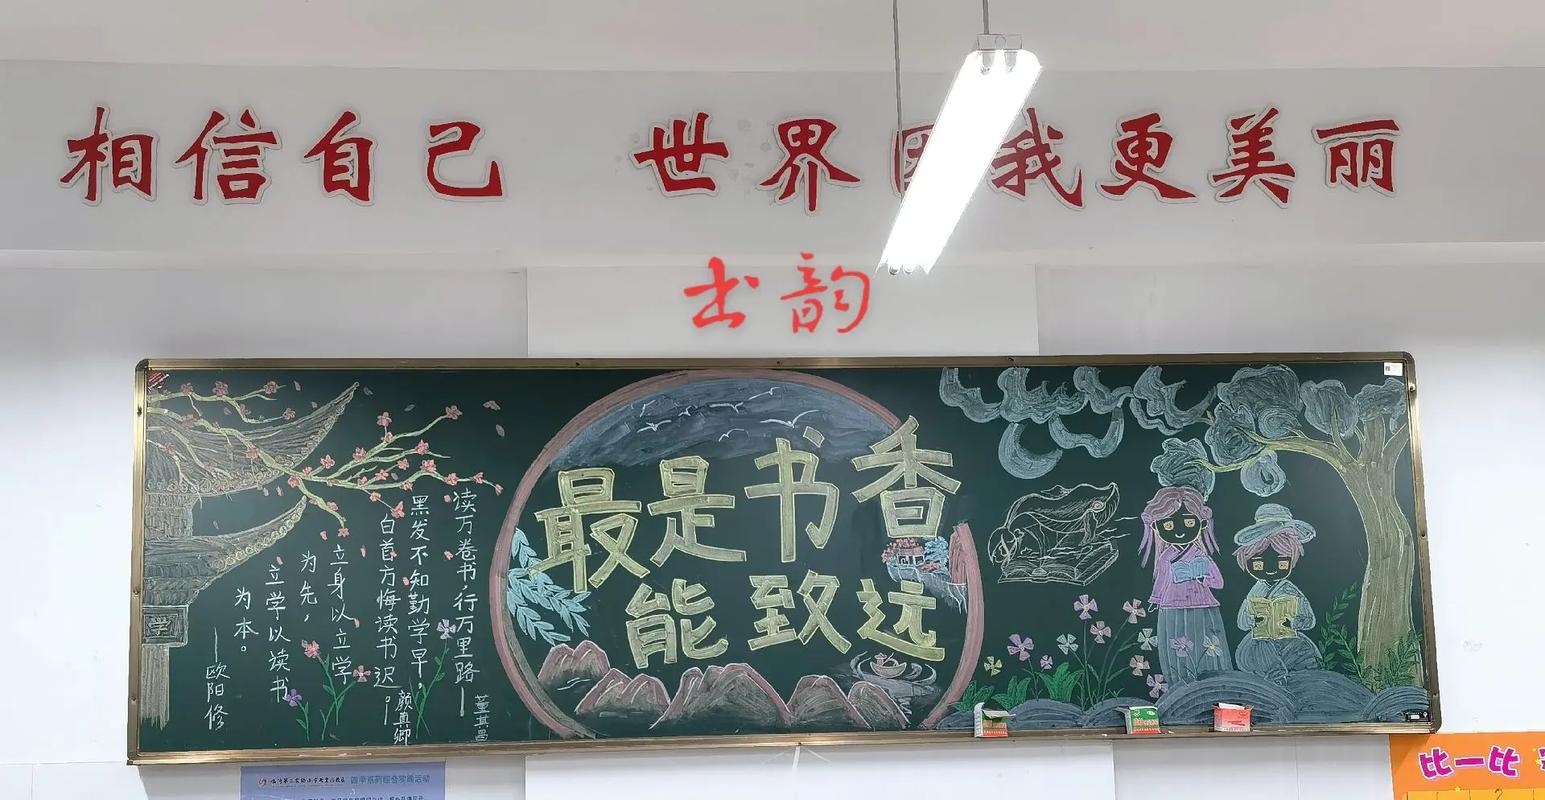 相信自己 世界因我更美丽
书韵
最是书香
能致远
读万卷书,行万里路——董其昌
黑发不知勤学早,
白首方悔读书迟。——颜真卿
立身以立学
为先,
立学以读书
为本。
——欧阳修
学
四季系列综合实践活动
比一比